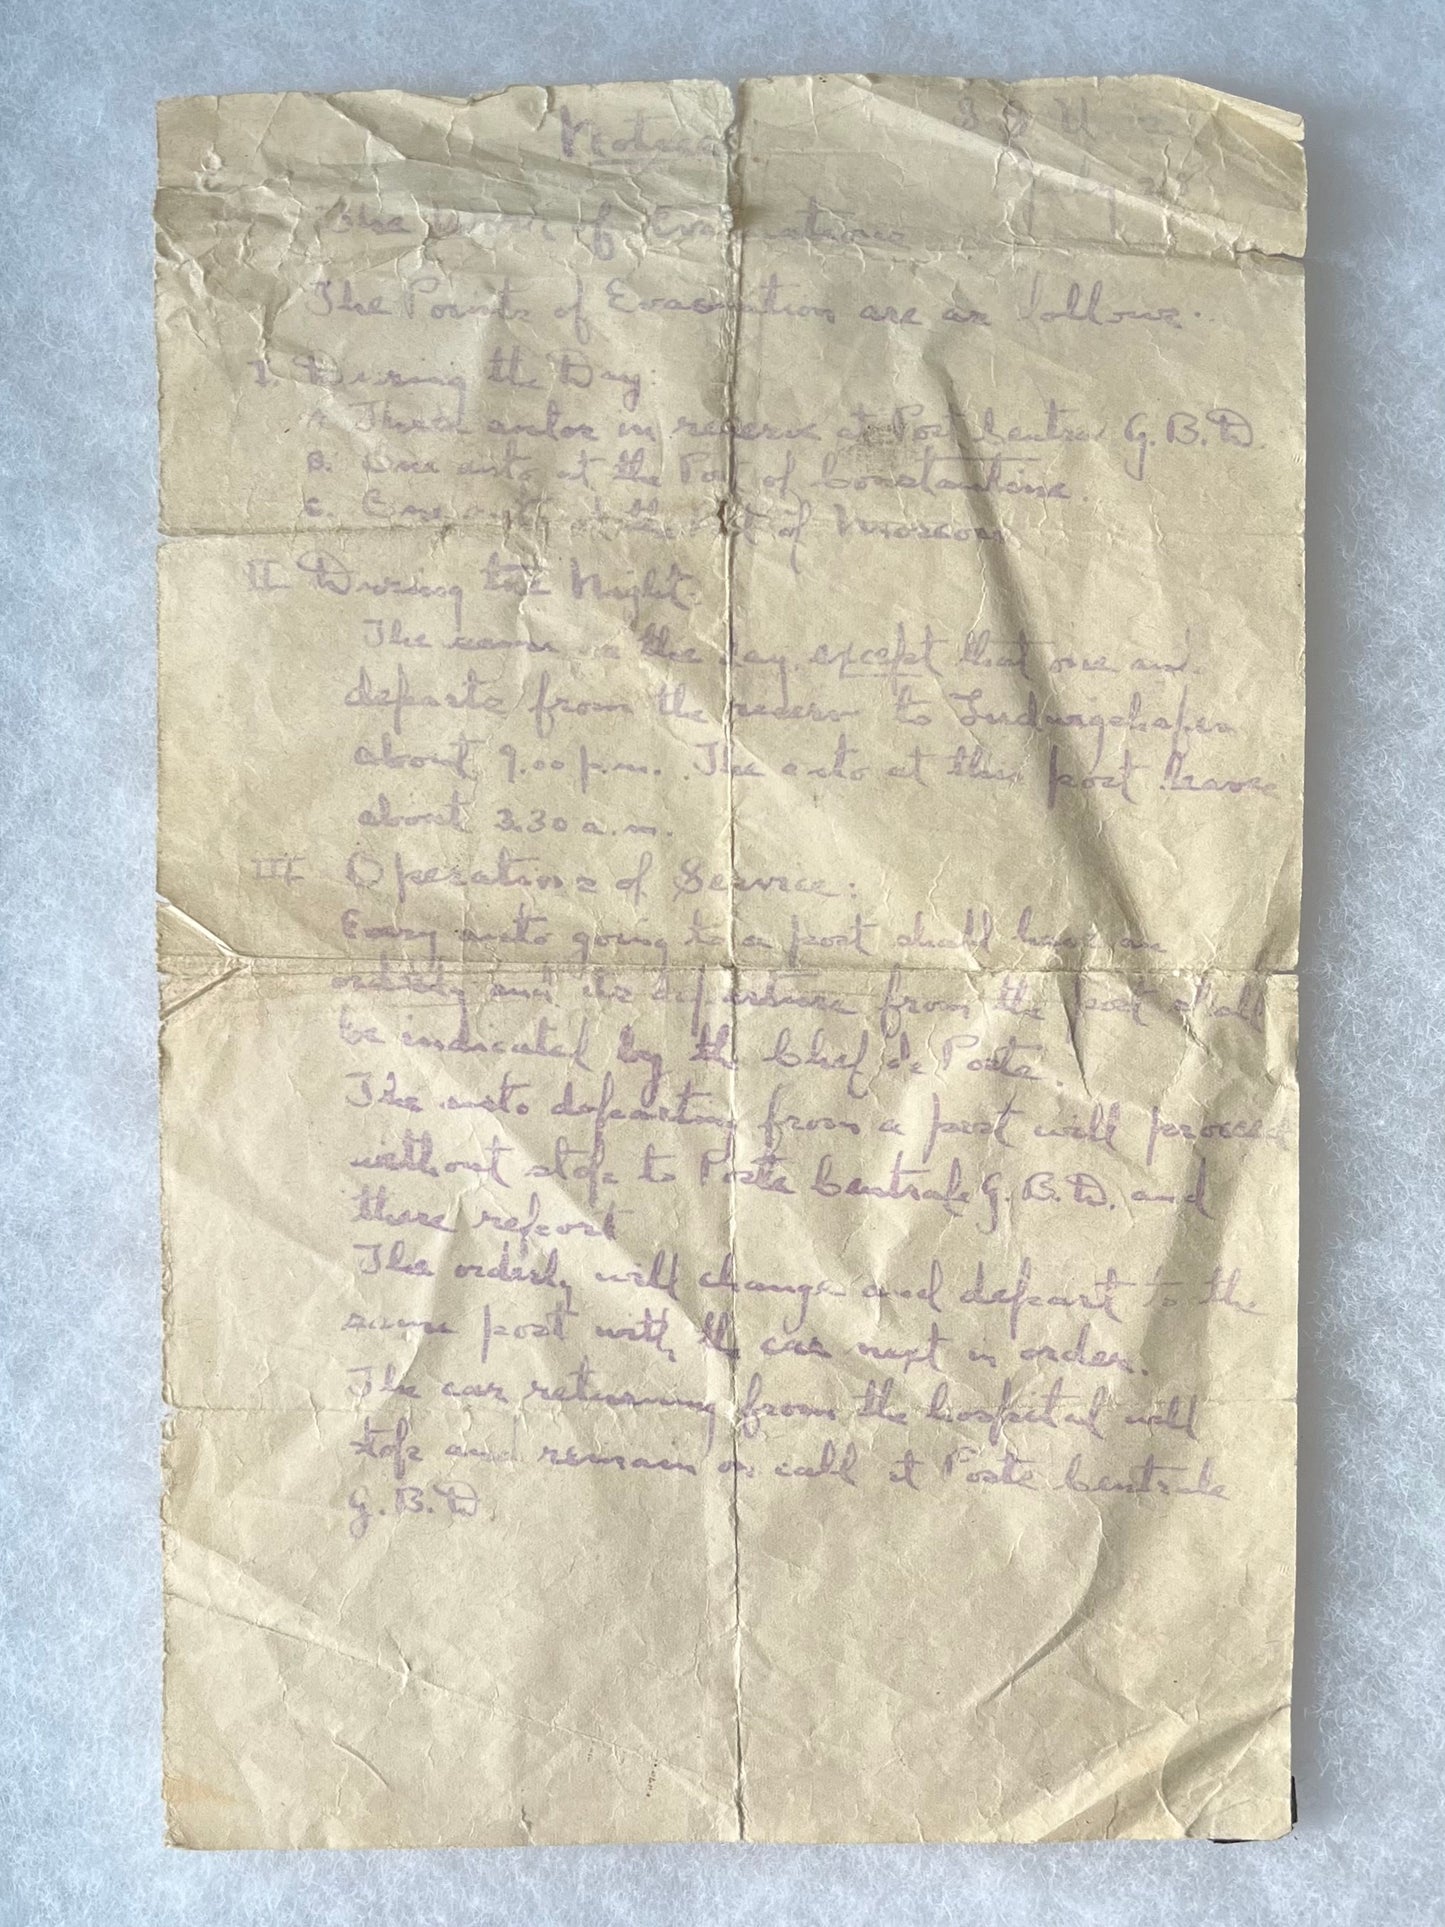 Notice
S.S.U.
July 28
The Order of Evacuations
The Points of Evacuation are as follows:
I. During the Day:
A. Three autos in reserve at Post Central G.B.D.
B. One auto at the Post of Constantine.
C. One auto at the Post of Moscou
II During the Night:
The same as the day except that one auto
departs from the reserve to Ludwigshafen
about 9.00 p.m. The auto at this post leave
about 3.30 a.m.
III Operations of Service:
Every auto going to a post shall have an
orderly and its departure from the post shall
be indicated by the Chef de Poste.
The auto departing from a post will proceed
without stops to Poste Centrale G.B.D. and
there report
The orderly will change and depart to the
same post with the car next in order.
The car returning from the hospital will
stop and remain on call at Poste Centrale
G.B.D.